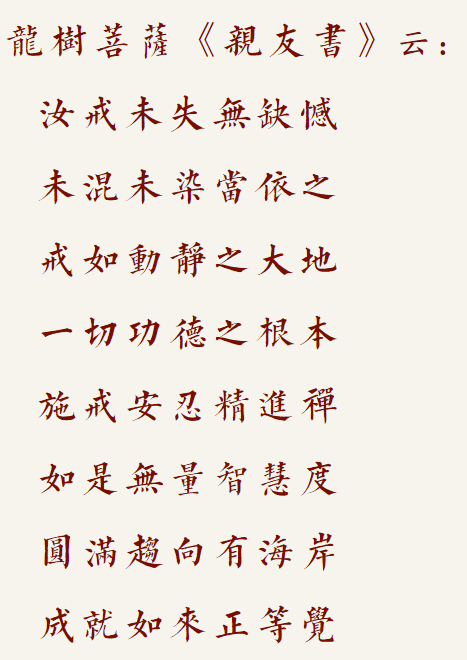 龍樹菩薩《親友書》云：
汝戒未失無缺憾
未混未染當依之
戒如動靜之大地
一切功德之根本
施戒安忍精進禪
如是無量智慧度
圓滿趨向有海岸
成就如來正等覺